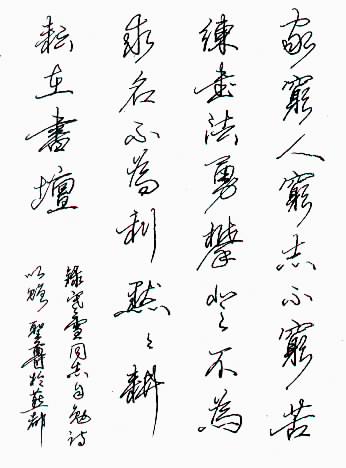 家窮人窮志不窮苦
練書法勇攀登不為
求名不為利默々耕
耘在書壇
錄雪同志自勉詩
以贈 聖尊於燕都